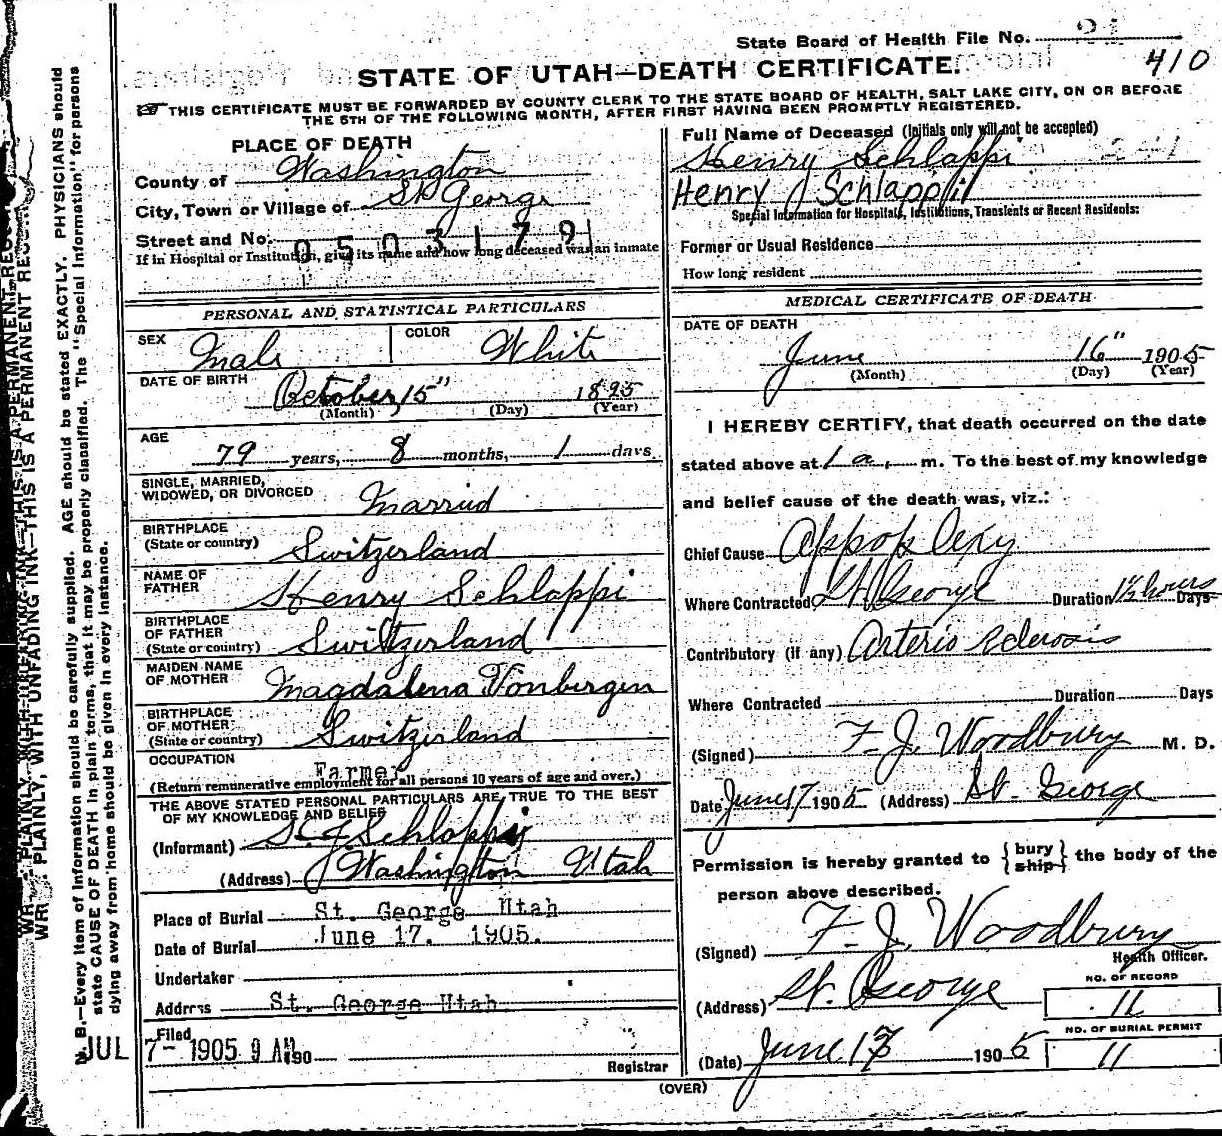 State Board of Health File No.
410
STATE OF UTAH—DEATH CERTIFICATE.
THIS CERTIFICATE MUST BE FORWARDED BY COUNTY CLERK TO THE STATE BOARD OF HEALTH, SALT LAKE CITY, ON OR BEFORE
THE 5TH OF THE FOLLOWING MONTH, AFTER FIRST HAVING BEEN PROMPTLY REGISTERED.
PLACE OF DEATH
County of Washington
City, Town or Village of St George
Street and No. 0503179
If in Hospital or Institution, give its name and how long deceased was an inmate
Full Name of Deceased (Initials only will not be accepted)
Henry Schlappi
Henry Schlappi
Special Information for Hospitals, Institutions, Transients or Recent Residents:
Former or Usual Residence
How long resident
PERSONAL AND STATISTICAL PARTICULARS
SEX Male COLOR White
DATE OF BIRTH October 15" 1825
(Month) (Day) (Year)
AGE 79 years, 8 months, 1 days
SINGLE, MARRIED,
WIDOWED, OR DIVORCED Married
BIRTHPLACE
(State or country) Switzerland
NAME OF
FATHER Henry Schlappi
BIRTHPLACE
OF FATHER
(State or country) Switzerland
MAIDEN NAME
OF MOTHER Magdalena Vonbergin
BIRTHPLACE
OF MOTHER
(State or country) Switzerland
OCCUPATION
Farmer
(Return remunerative employment for all persons 10 years of age and over.)
THE ABOVE STATED PERSONAL PARTICULARS ARE TRUE TO THE BEST
OF MY KNOWLEDGE AND BELIEF
(Informant) Schlappi
(Address) Washington Utah
Place of Burial St. George Utah
Date of Burial June 17. 1905.
Undertaker
Address St. George Utah.
Filed
JUL 7- 1905 9 AM 190
Registrar
MEDICAL CERTIFICATE OF DEATH
DATE OF DEATH
June 16" 1905
(Month) (Day) (Year)
I HEREBY CERTIFY, that death occurred on the date
stated above at 1 a. m. To the best of my knowledge
and belief cause of the death was, viz.:
Chief Cause Appoplexy
Where Contracted St. George Duration 1½ hours Days
Contributory (if any) Arterio sclerosis
Where Contracted Duration Days
(Signed) F. J. Woodbury M. D.
Date June 17 1905 (Address) St. George
Permission is hereby granted to { bury ship } the body of the
person above described.
(Signed) F. J. Woodbury
Health Officer.
(Address) St. George
NO. OF RECORD
11
NO. OF BURIAL PERMIT
11
(Date) June 17 1905
(OVER)
WRITE PLAINLY, WITH UNFADING INK—THIS IS A PERMANENT RECORD
N. B.—Every item of information should be carefully supplied. AGE should be stated EXACTLY. PHYSICIANS should
state CAUSE OF DEATH in plain terms, that it may be properly classified. The "Special Information" for persons
dying away from home should be given in every instance.